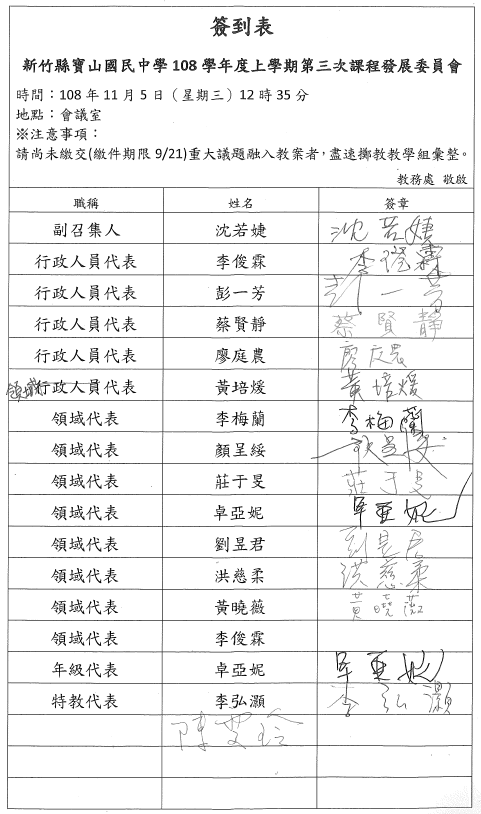 簽到表
新竹縣寶山國民中學 108 學年度上學期第三次課程發展委員會
時間：108 年 11 月 5 日（星期三）12 時 35 分
地點：會議室
※注意事項：
請尚未繳交(繳件期限 9/21)重大議題融入教案者，盡速擲教教學組彙整。
教務處 敬啟
職稱 姓名 簽章
副召集人 沈若婕 沈若婕
行政人員代表 李俊霖 李
行政人員代表 彭一芳 彭一芳
行政人員代表 蔡賢靜 蔡賢靜
行政人員代表 廖庭農 廖庭農
領域 行政人員代表 黃培煖 黃培煖
領域代表 李梅蘭 李梅蘭
領域代表 顏呈綏
領域代表 莊于旻 莊于旻
領域代表 卓亞妮 卓亞妮
領域代表 劉昱君 劉昱君
領域代表 洪慈柔 洪慈柔
領域代表 黃曉薇 黃曉薇
領域代表 李俊霖
年級代表 卓亞妮 卓亞妮
特教代表 李弘灝 李弘灝
陳艾玲